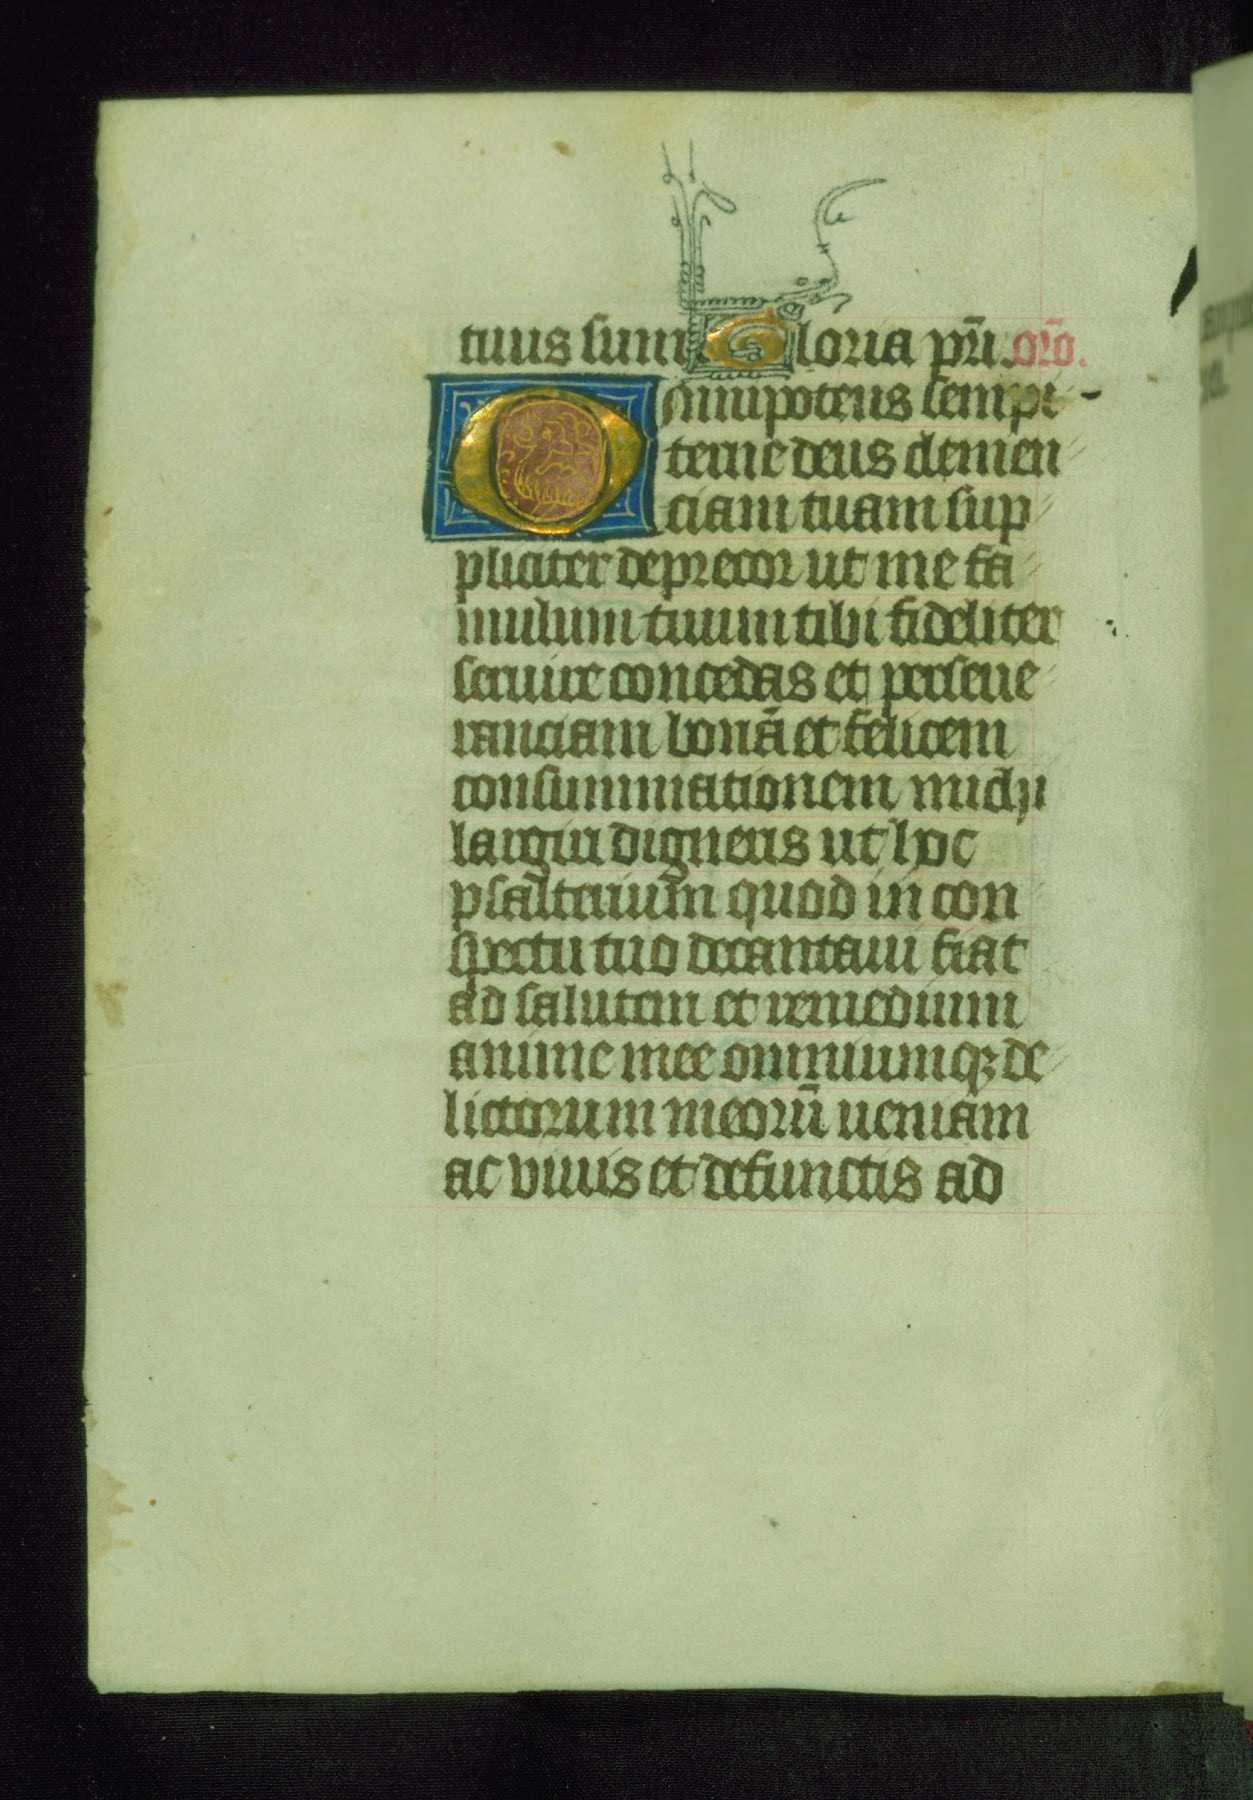 tuus sum Gloria pr̄i. or̄o.
Omnipotens sempi
terne deus clemen
ciam tuam sup
pliciter deprecor ut me fa
mulum tuum tibi fideliter
seruire concedas et perseue
ranciam bonā et felicem
consummationem michi
largiri digneris ut hoc
psalterium quod in con
spectu tuo decantaui fiat
ad salutem et remedium
anime mee omniumqꝫ de
lictorum meorū ueniam
ac viuis et defunctis ad